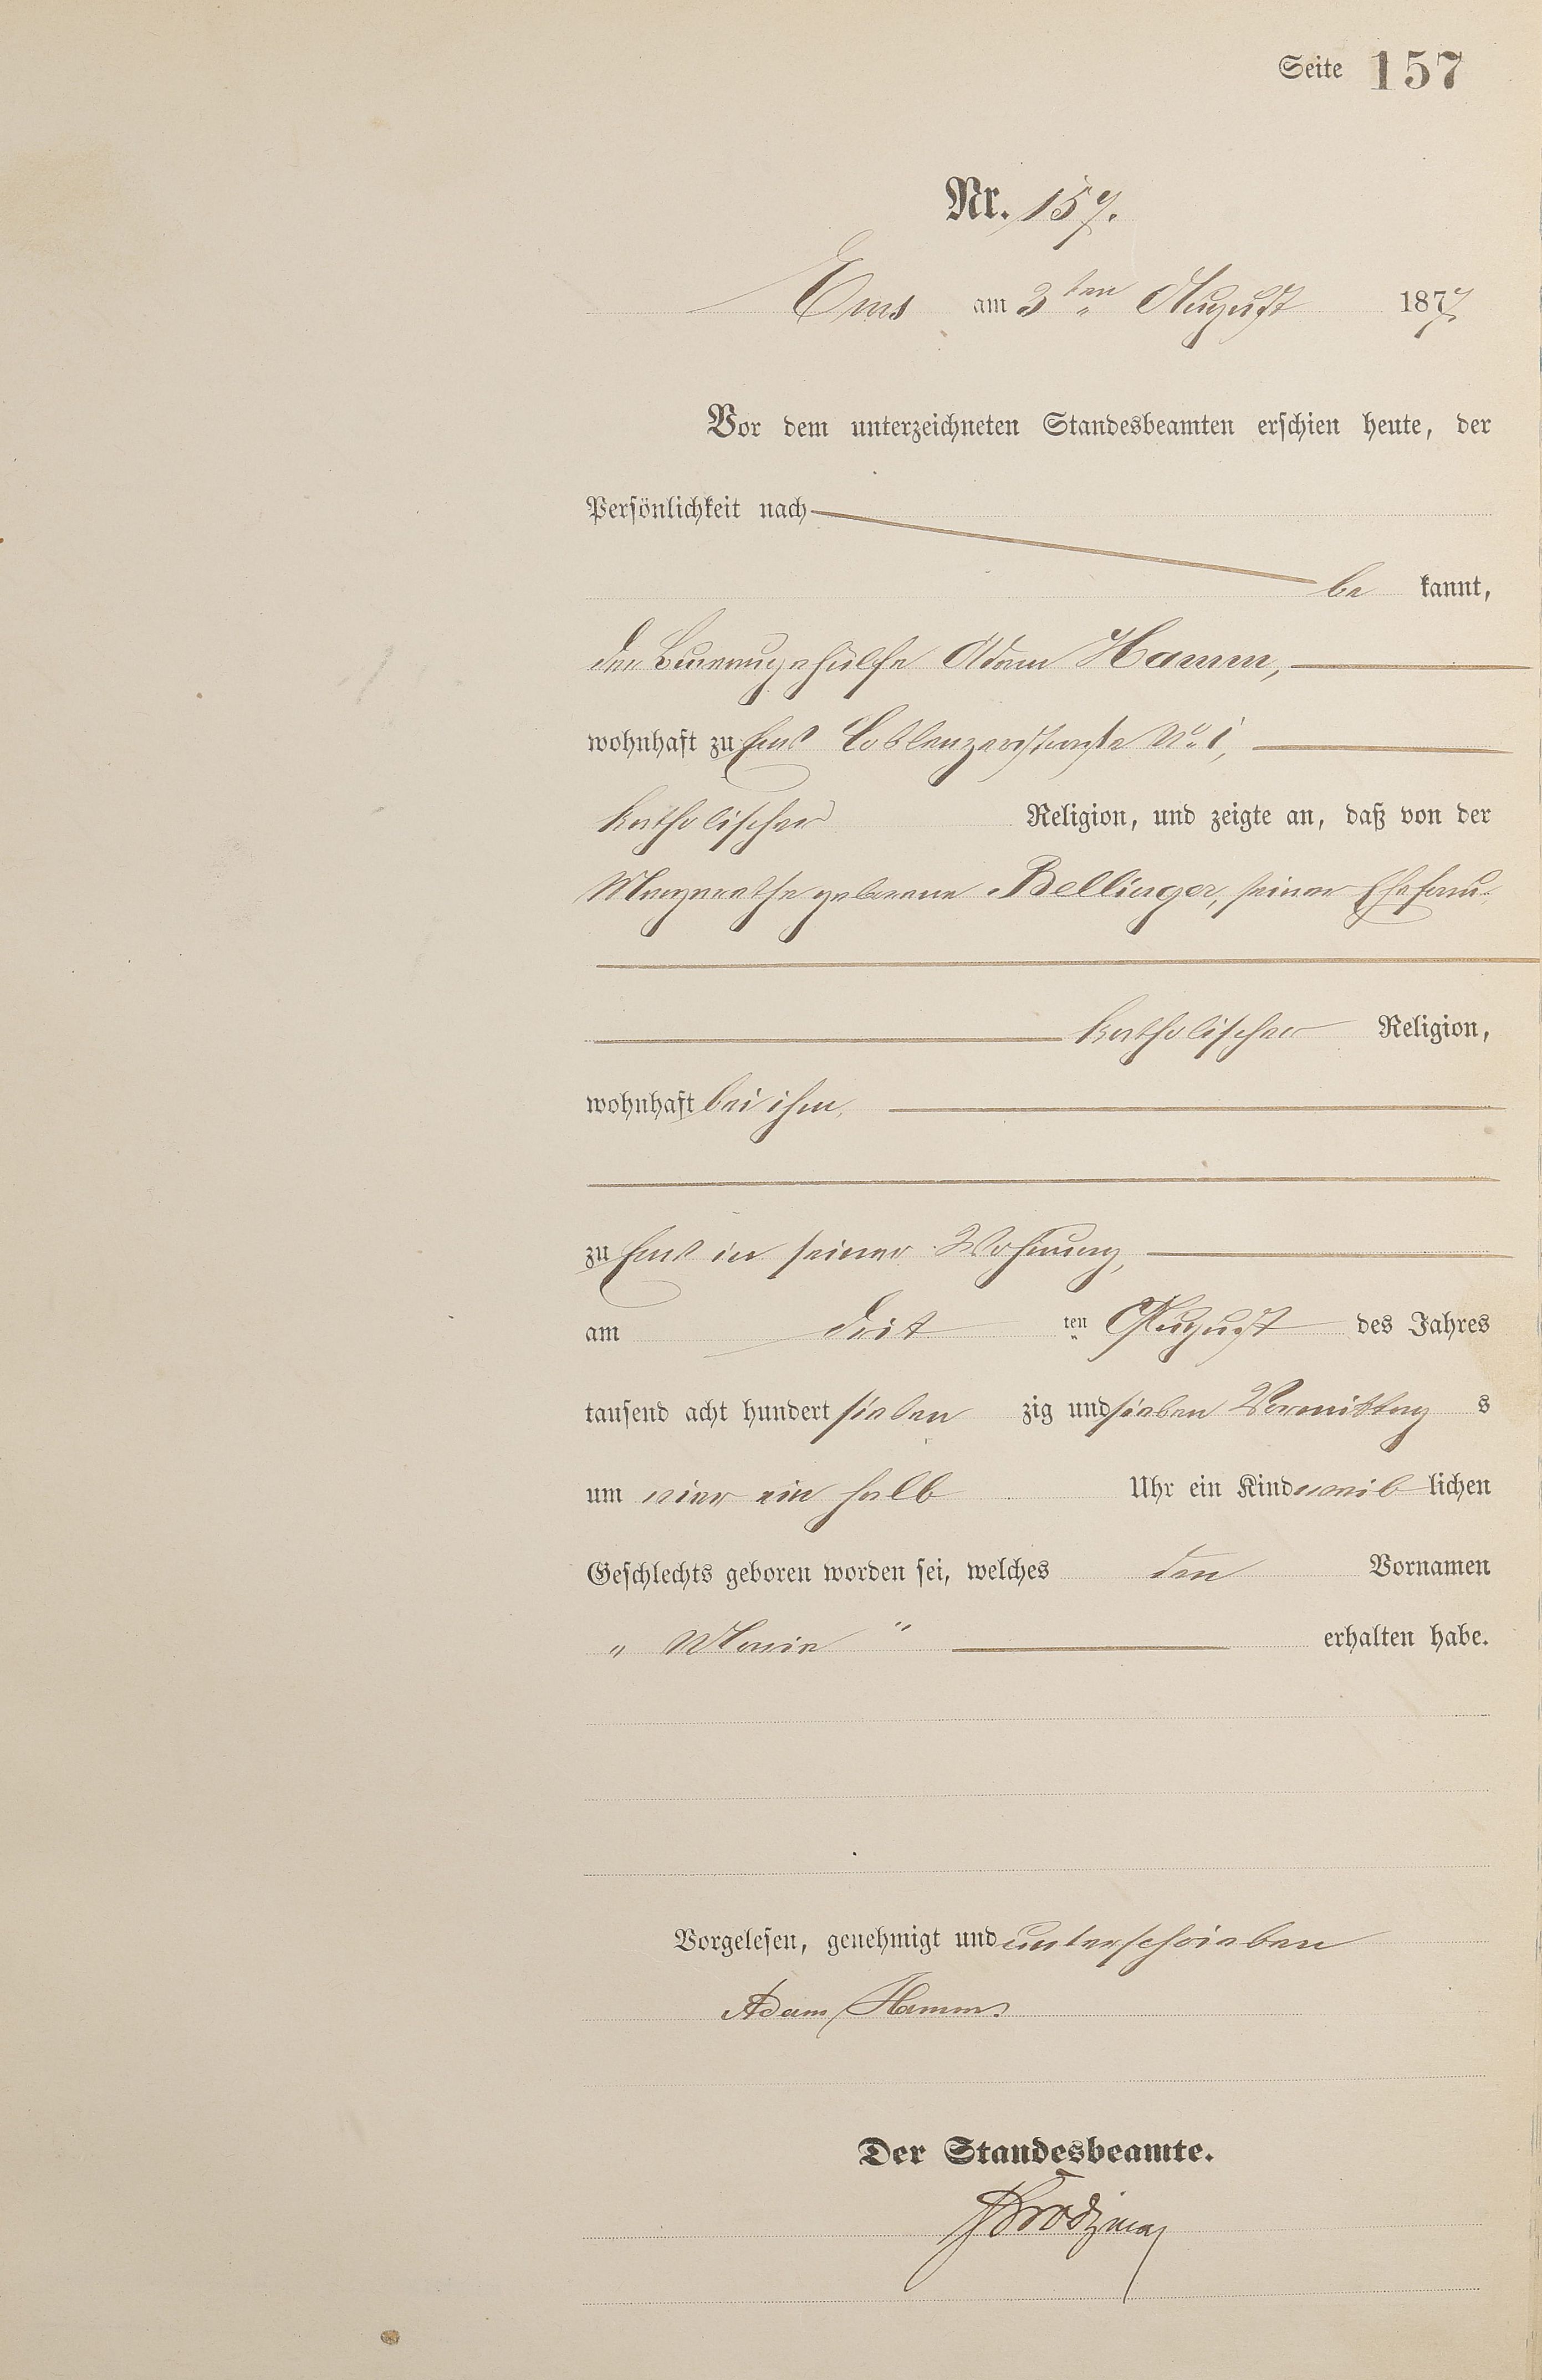 Seite 157
Nr. 157.
Ems am 3ten August 1877.
Vor dem unterzeichneten Standesbeamten erschien heute, der
Persönlichkeit nach
be kannt,
der Adam Hamm,
wohnhaft zu Ems Coblenzerstraße No. 1,
katholischer Religion, und zeigte an, daß von der
Margarethe geborene Bellinger, seiner Ehefrau
katholischer Religion,
wohnhaft bei ihm,
zu Ems in seiner Wohnung,
am drit ten August des Jahres
tausend acht hundert sieben zig und sieben Vormittag s
um vier ein halb Uhr ein Kind weib lichen
Geschlechts geboren worden sei, welches den Vornamen
„ Marie “ erhalten habe.
Vorgelesen, genehmigt und unterschrieben
Adam Hamm
Der Standesbeamte.